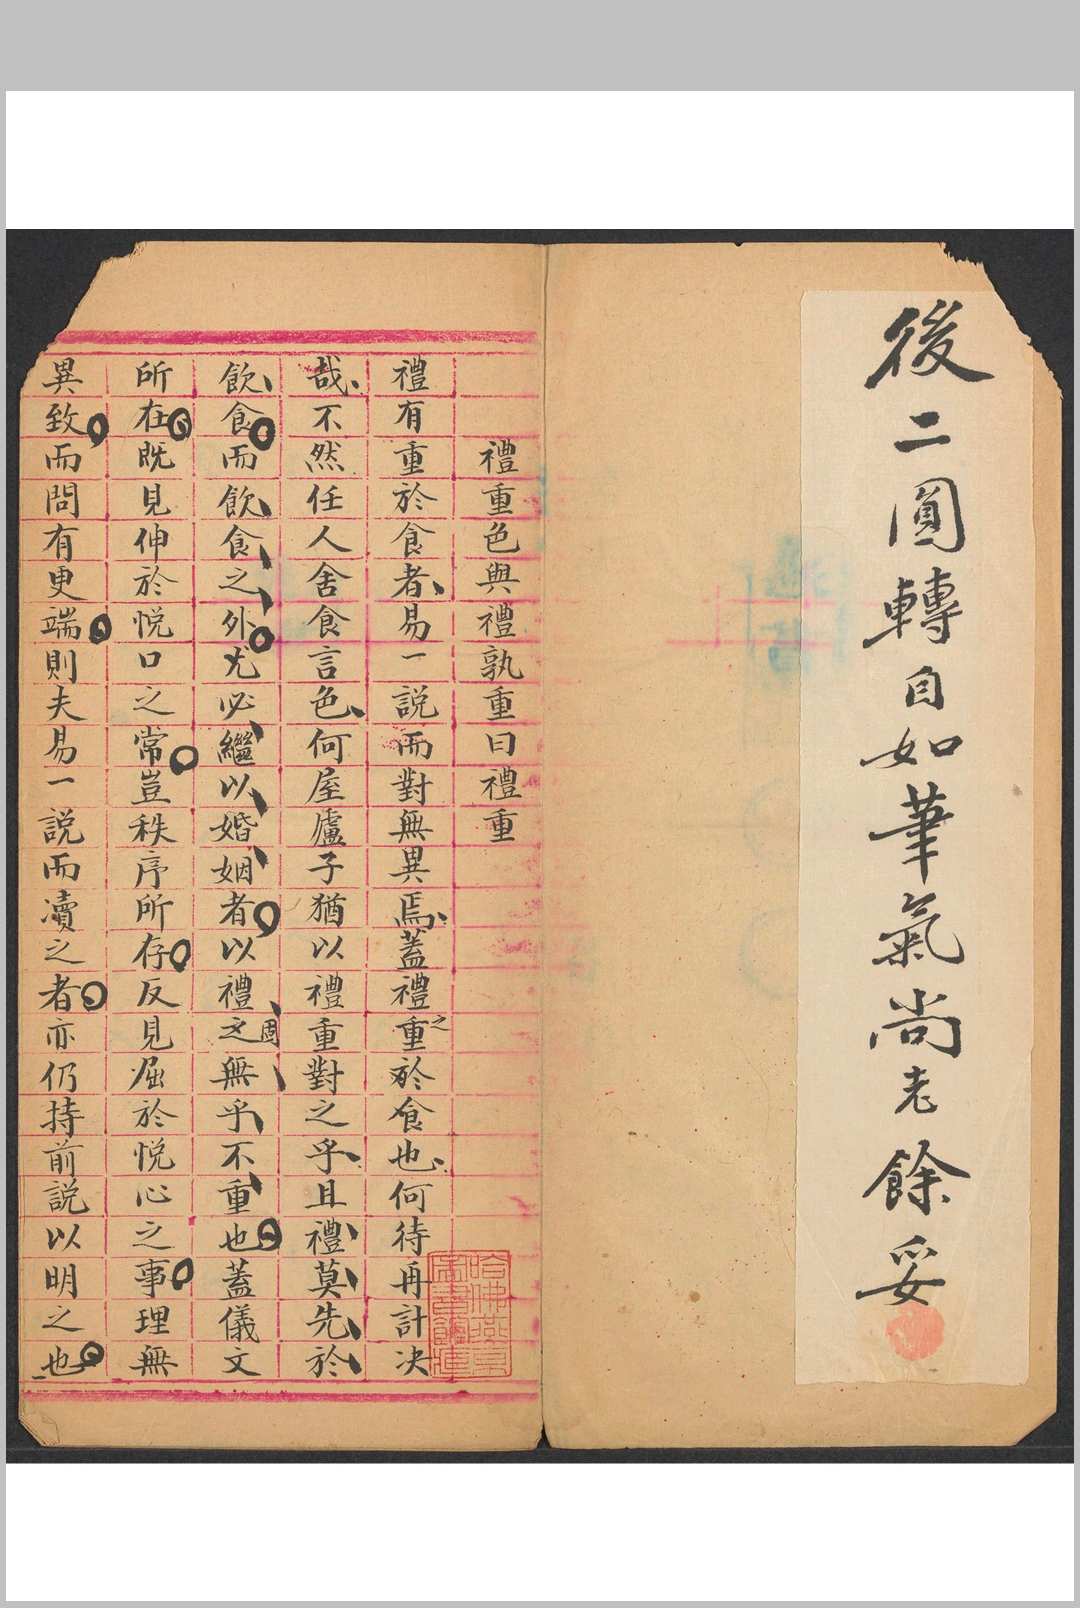 後二圓轉自如筆氣尚老餘妥
禮重色與禮孰重曰禮重
禮有重於食者易一說而對無異焉蓋禮之重於食也何待再計决
哉不然任人舍食言色何屋廬子猶以禮重對之乎且禮莫先於
飲食而飲食之外尤必繼以婚姻者以禮之固無乎不重也蓋儀文
所在既見伸於悅口之常豈秩序所存反見屈於悅心之事理無
異致而問有更端則夫易一說而瀆之者亦仍持前說以明之也
哈佛燕京
圖書館